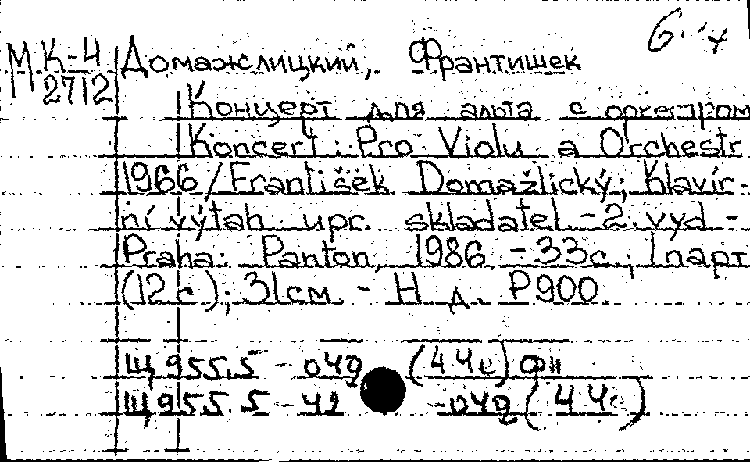 МК-4 Домажлицкий, Франтишек
2712
Концерт для альта с оркестром
Koncert: Pro Violu a Orchestr
1966/František Domažlický; Klavír-
ní výtah upr. skladatel - 2. vyd -
Praha: Panton, 1986 - 33с., 1парт
(12 с); 31см. - Н. д. Р900
Щ955.5 - 049 (4Че) фи
Щ955.5 - 42 -049 (4Че)